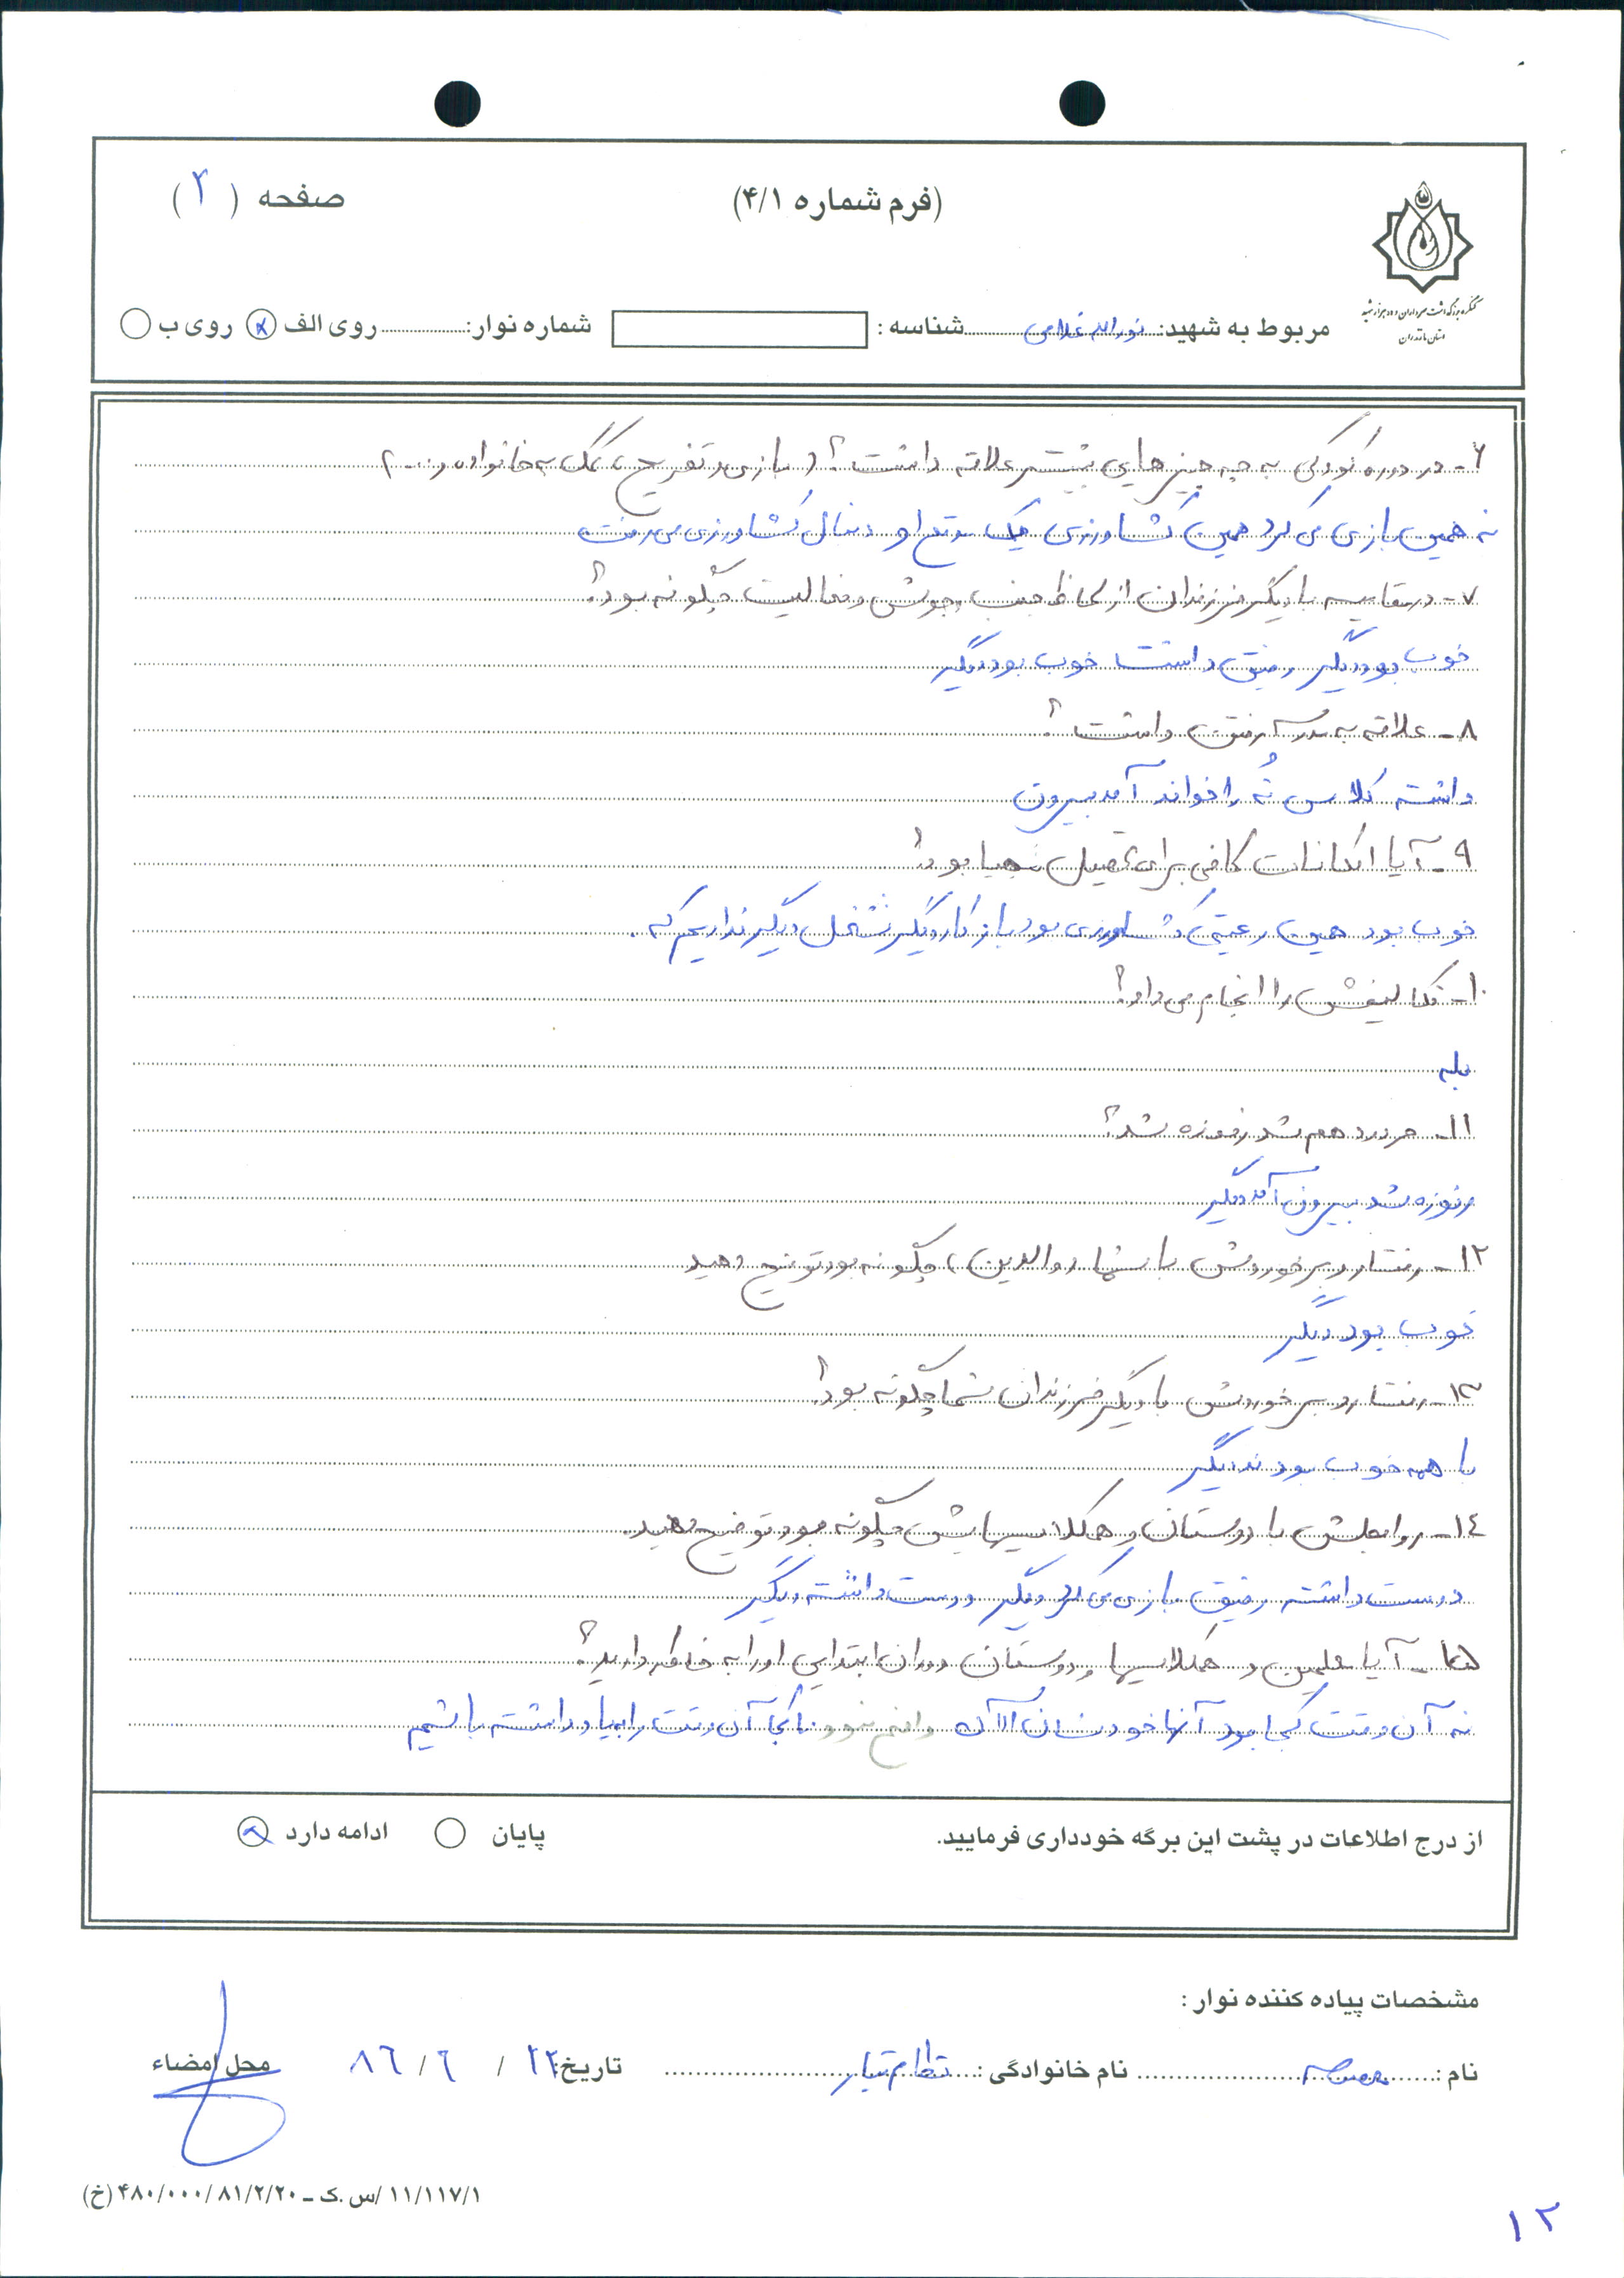 (فرم شماره ۴/۱)
صفحه (۲)
کنگره بزرگداشت سرداران و ده هزار شهید
استان مازندران
مربوط به شهید: نوراله غلامی شناسه: شماره نوار: روی الف روی ب
۶- در دوره کودکی به چه چیزهایی بیشتر علاقه داشت؟ (بازی و تفریح، کمک به خانواده و...)
نه همین بازی می کرد همین کشاورزی یک موقع او دنبال کشاورزی می رفت
۷- در مقایسه با دیگر فرزندان از لحاظ جنب و جوش و فعالیت چگونه بود؟
خوب بود دیگر رفیق داشت خوب بود دیگر
۸- علاقه به مدرسه رفتن داشت؟
داشته کلاس نُه را خواند آمد بیرون
۹- آیا امکانات کافی برای تحصیل مهیا بود؟
خوب بود همین رعیتی کشاورزی بود باز کار دیگر شغل دیگر نداریم که.
۱۰- تکالیفش را انجام می داد؟
بله
۱۱- مردود هم شد رفوزه شد؟
رفوزه شد بیرون آمد دیگر
۱۲- رفتار و برخوردش با شما (والدین) چگونه بود توضیح دهید
خوب بود دیگر
۱۳- رفتار و برخوردش با دیگر فرزندان شما چگونه بود؟
با همه خوب بودند دیگر
۱٤- روابطش با دوستان و همکلاسیهایش چگونه بود توضیح دهید.
دوست داشته رفیق بازی می کرد دیگر دوست داشته دیگر
۱۵- آیا معلمین و همکلاسیها و دوستان دوران ابتدایی او را به خاطر دارید؟
نه آن وقت کجا بود آنها خودشان الآن دانم شوود تا کجا آن وقت را بیاد داشته باشیم
از درج اطلاعات در پشت این برگه خودداری فرمایید. پایان ادامه دارد
مشخصات پیاده کننده نوار:
نام: نام خانوادگی: تاریخ: ۲۲ / ٦ / ٨٦ محل امضاء
۱۱/۱۱۷/۱ /س.ک ـ ۴۸۰/۰۰۰/۸۱/۲/۲۰ (خ)
۱۲